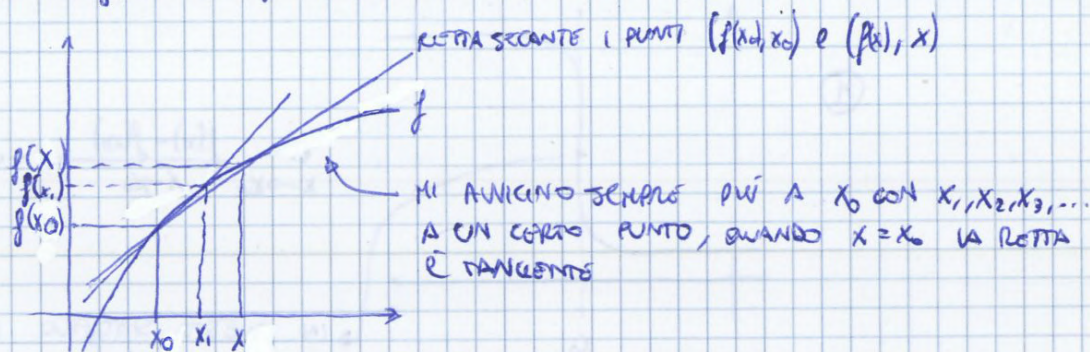 RETTA SECANTE I PUNTI (f(x₀), x₀) e (f(x), x)
f
f(x)
f(x₁)
f(x₀)
MI AVVICINO SEMPRE PIÙ A x₀ CON x₁, x₂, x₃, ...
A UN CERTO PUNTO, QUANDO x = x₀ LA RETTA
È TANGENTE
x₀ x₁ x